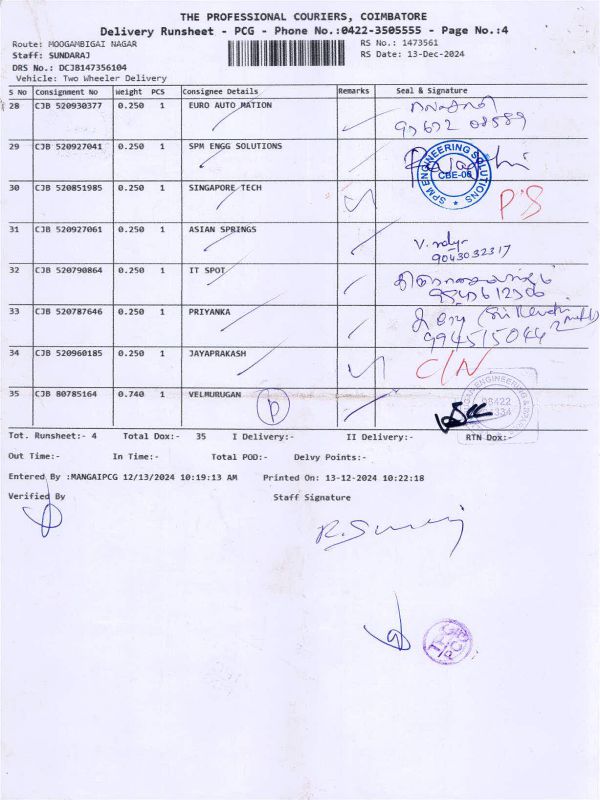 THE PROFESSIONAL COURIERS, COIMBATORE
Delivery Runsheet - PCG - Phone No.:0422-3505555 - Page No.:4
Route: MOOGAMBIGAI NAGAR RS No.: 1473561
Staff: SUNDARAJ RS Date: 13-Dec-2024
DRS No.: DCJB147356104
Vehicle: Two Wheeler Delivery
S No Consignment No Weight PCS Consignee Details Remarks Seal & Signature
28 CJB 520930377 0.250 1 EURO AUTO MATION
29 CJB 520927041 0.250 1 SPM ENGG SOLUTIONS
SPM ENGINEERING SOLUTIONS
CBE-06
30 CJB 520851985 0.250 1 SINGAPORE TECH P'S
31 CJB 520927061 0.250 1 ASIAN SPRINGS
9043032317
32 CJB 520790864 0.250 1 IT SPOT
33 CJB 520787646 0.250 1 PRIYANKA
994515044
34 CJB 520960185 0.250 1 JAYAPRAKASH C/N
35 CJB 80785164 0.740 1 VELMURUGAN
Tot. Runsheet:- 4 Total Dox:- 35 I Delivery:- II Delivery:- RTN Dox:-
Out Time:- In Time:- Total POD:- Delvy Points:-
Entered By :MANGAIPCG 12/13/2024 10:19:13 AM Printed On: 13-12-2024 10:22:18
Verified By Staff Signature